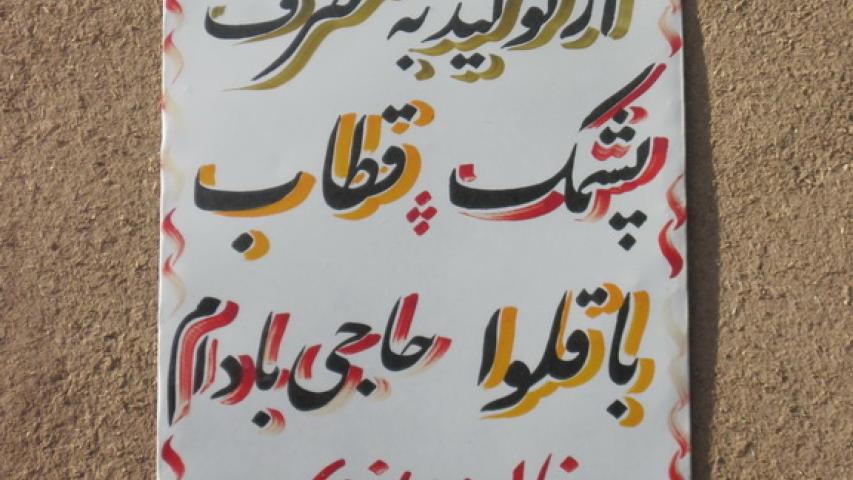 از تولید به مصرف
پشمک قطاب
باقلوا حاجی بادام